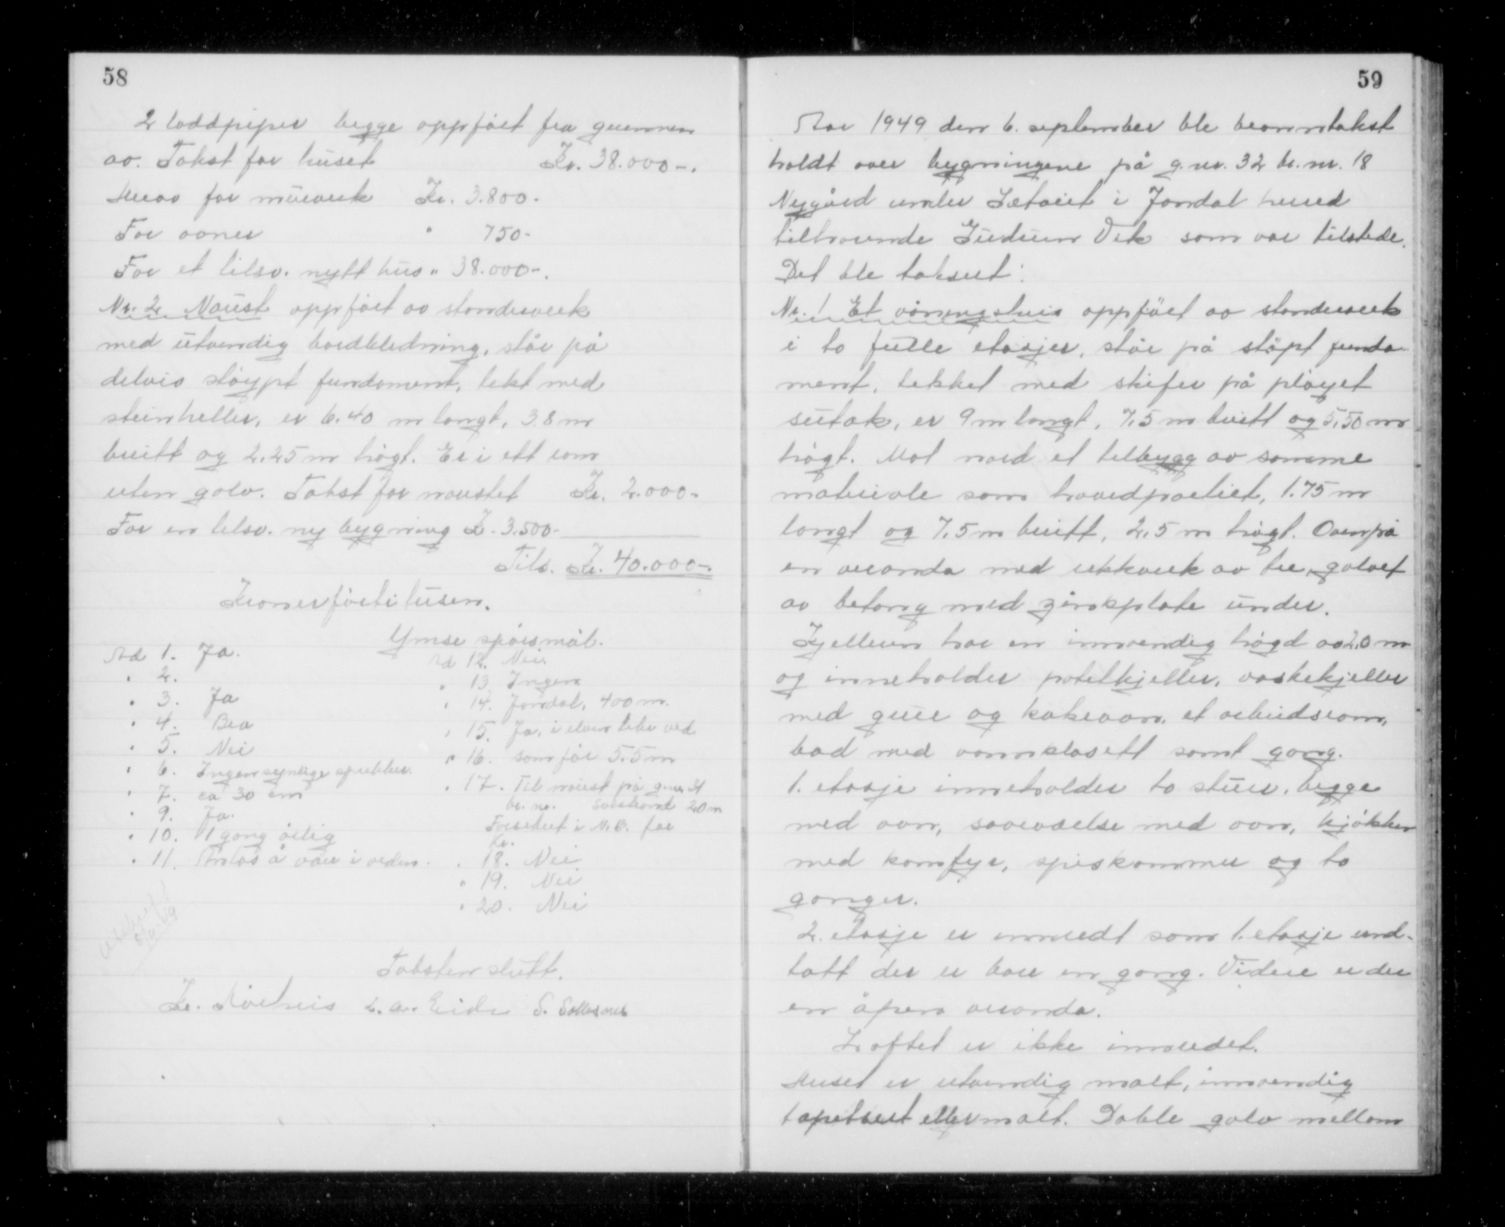 58
2 loddpiper begge oppført fra grunnen
av. Takst for huset Kr. 38.000-.
Herav for murverk Kr. 3.800-
For ovner " 750-
For et tilsv. nytt hus " 38.000-.
Nr. 2 Naust oppført av standerverk
med utvendig bordkledning, står på
delvis støypt fundament, tekt med
steinheller, er 6.40 m langt, 3.8 m
breitt og 2.25 m høgt. Er i ett rom
uten golv. Takst for naustet Kr. 2.000-
For en tilsv. ny bygning K. 3.500-
Tils. Kr. 40.000-.
Kroner førtitusen.
Ymse spørsmål.
Ad 1. Ja.
" 2.
" 3. Ja
" 4. Bra
" 5. Nei
" 6. Ingen synlige sprekker.
" 7. ca 30 cm
" 9. Ja.
" 10. 1 gong årlig
" 11. Antas å være i orden.
Ad 12. Nei
" 13. Ingen
" 14. Jondal, 400 m.
" 15. Ja, i elven like ved
" 16. som før 5.5 m
" 17. Til naust på g.nr. 31
br. nr. 20 m
Forsikret i N.B. for
Kr.
" 18. Nei
" 19. Nei
" 20. Nei
Taksten slutt.
L. A. Eide S.
59
Aar 1949 den 6. september ble branntakst
holdt over bygningene på g.nr. 32 br.nr. 18
Nygård under i Jondal herred
tilhørende Gudrun Vik som var tilstede.
Det ble taksert:
Nr. 1 Et våningshus oppført av standerverk
i to fulle etasjer, står på støpt funda-
ment, tekket med skifer på pløyet
sutak, er 9 m langt, 7,5 m breitt og 5,50 m
høgt. Mot nord et tilbygg av samme
materiale som hovedpartiet, 1.75 m
langt og 7,5 m breitt, 2,5 m høgt. Ovenpå
en veranda med rekkverk av tre, golvet
av betong med zinkplate under.
Kjelleren har en innvendig høgd av 2.0 m
og inneholder potetkjeller, vaskekjeller
med grue og kakeovn, et arbeidsrom,
bad med vannklosett samt gang.
1. etasje inneholder to stuer, begge
med ovn, soveværelse med ovn, kjøkken
med komfyr, spiskammer og to
ganger.
2. etasje er innredt som 1. etasje und-
tatt der er bare en gang. Videre er der
en åpen veranda.
Loftet er ikke innredet.
Huset er utvendig malt, innvendig
tapetsert eller malt. Doble golv mellom